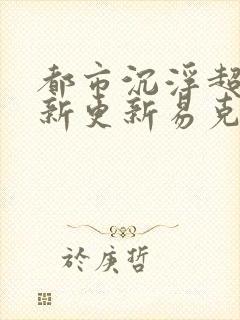 都市沉浮超
新更新易克
於庚哲